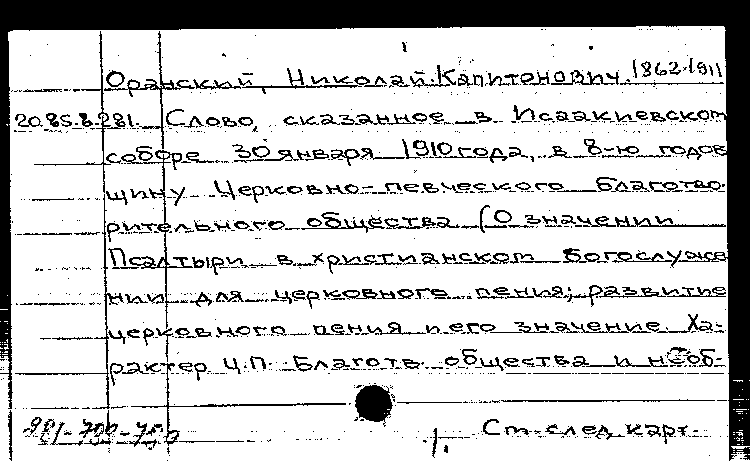 Оранский, Николай Капитонович. 1862-1911
20.85.8.281. Слово, сказанное в Исаакиевском
соборе 30 января 1910 года, в 8-ю годов
щину Церковно-певческого благотво-
рительного общества (О значении
Псалтыри в христианском богослуже
нии для церковного пения; развитие
церковного пения и его значение. Ха-
рактер Ц.П. Благотв. общества и необ-
Ст. след. карт.
1.